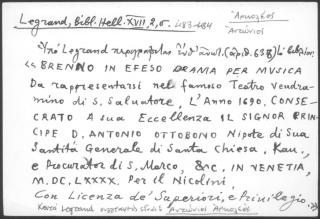 Legrand, Bibl. Hell. XVII, 2, σ. 483-484
Ἀντώνιος
Ὑπό Legrand
« BRENNO IN EFESO DRAMA PER MUSICA
Da rappresentarsi nel famoso Teatro Vendra-
mino di S. Salvatore, L'Anno 1690. CONSE-
CRATO A sua Eccellenza IL SIGNOR PRIN-
CIPE D. ANTONIO OTTOBONO Nipote di Sua
Santità Generale di Santa Chiesa, Kav.,
e Procurator di S. Marco, &c. IN VENETIA,
M.DC.LXXXX. Per il Nicolini,
Con Licenza de' Superiori, e Privilegio.»
Κατά Legrand Ἀντώνιος